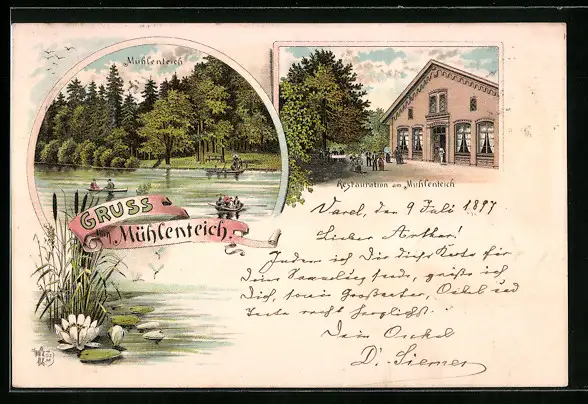 Mühlenteich
Restauration am Mühlenteich
GRUSS
vom Mühlenteich.
Varel, den 9 Juli 1897
Lieber Arthur!
Indem ich Dir diese Karte für
Deine Sammlung sende, grüße ich
Dich, sowie Großvater, Onkel und
Tante recht herzlichst.
Dein Onkel
D. Siemer